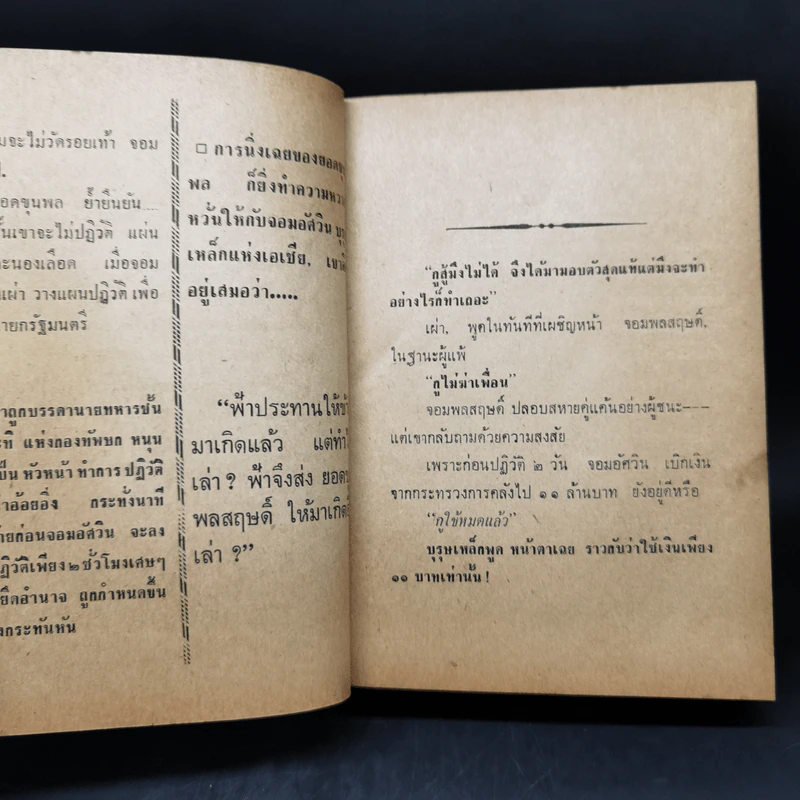 จะไม่วัดรอยเท้า จอม
อดขุนพล ย้ำยืนยัน....
เขาจะไม่ปฏิวัติ แผ่น
ะนองเลือด เมื่อจอม
เผ่า วางแผนปฏิวัติ เพื่อ
ายกรัฐมนตรี
าถูกบรรดานายทหารชั้น
ะที่ แห่งกองทัพบก หนุน
ป็น หัวหน้า ทำการ ปฏิวัติ
าอ้อยอิ่ง กระทั่งนาที
ายก่อนจอมอัศวิน จะลง
ฏิวัติเพียง ๒ ชั่วโมงเศษๆ
ยึดอำนาจ ถูกกำหนดขึ้น
งกระทันหัน
□ การนิ่งเฉยของยอดขุ
พล ก็ยิ่งทำความหวา
หวั่นให้กับจอมอัศวิน บุรุ
เหล็กแห่งเอเซีย, เขา
อยู่เสมอว่า.....
“ฟ้าประทานให้ข้
มาเกิดแล้ว แต่ทำไ
เล่า ? ฟ้าจึงส่ง ยอดข
พลสฤษดิ์ ให้มาเกิด
เล่า ?”
“กูสู้มึงไม่ได้ จึงได้มามอบตัวสุดแท้แต่มึงจะทำ
อย่างไรก็ทำเถอะ”
เผ่า, พูดในทันทีที่เผชิญหน้า จอมพลสฤษดิ์,
ในฐานะผู้แพ้
“กูไม่ฆ่าเพื่อน”
จอมพลสฤษดิ์ ปลอบสหายคู่แค้นอย่างผู้ชนะ---
แต่เขากลับถามด้วยความสงสัย
เพราะก่อนปฏิวัติ ๒ วัน จอมอัศวิน เบิกเงิน
จากกระทรวงการคลังไป ๑๑ ล้านบาท ยังอยู่ดีหรือ
“กูใช้หมดแล้ว”
บุรุษเหล็กพูด หน้าตาเฉย ราวกับว่าใช้เงินเพียง
๑๑ บาทเท่านั้น !